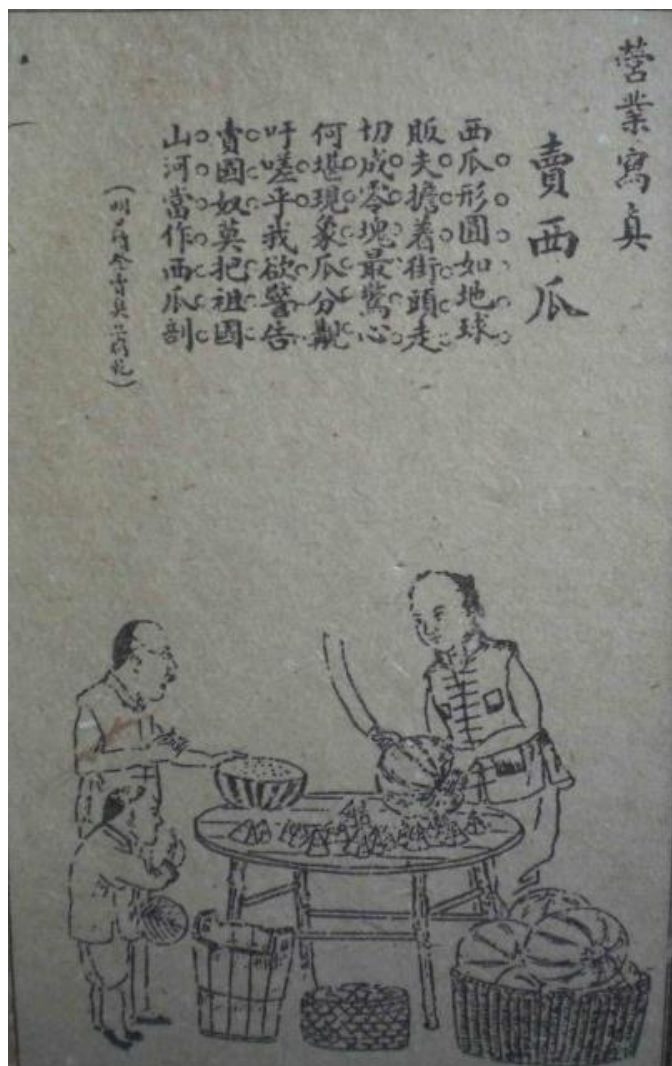 營業寫真
賣西瓜
西瓜形圓如地球
販夫擔着街頭走
切成零塊最驚心
何堪現象瓜分覯
吁嗟乎我欲警告
賣國奴莫把祖國
山河當作西瓜剖